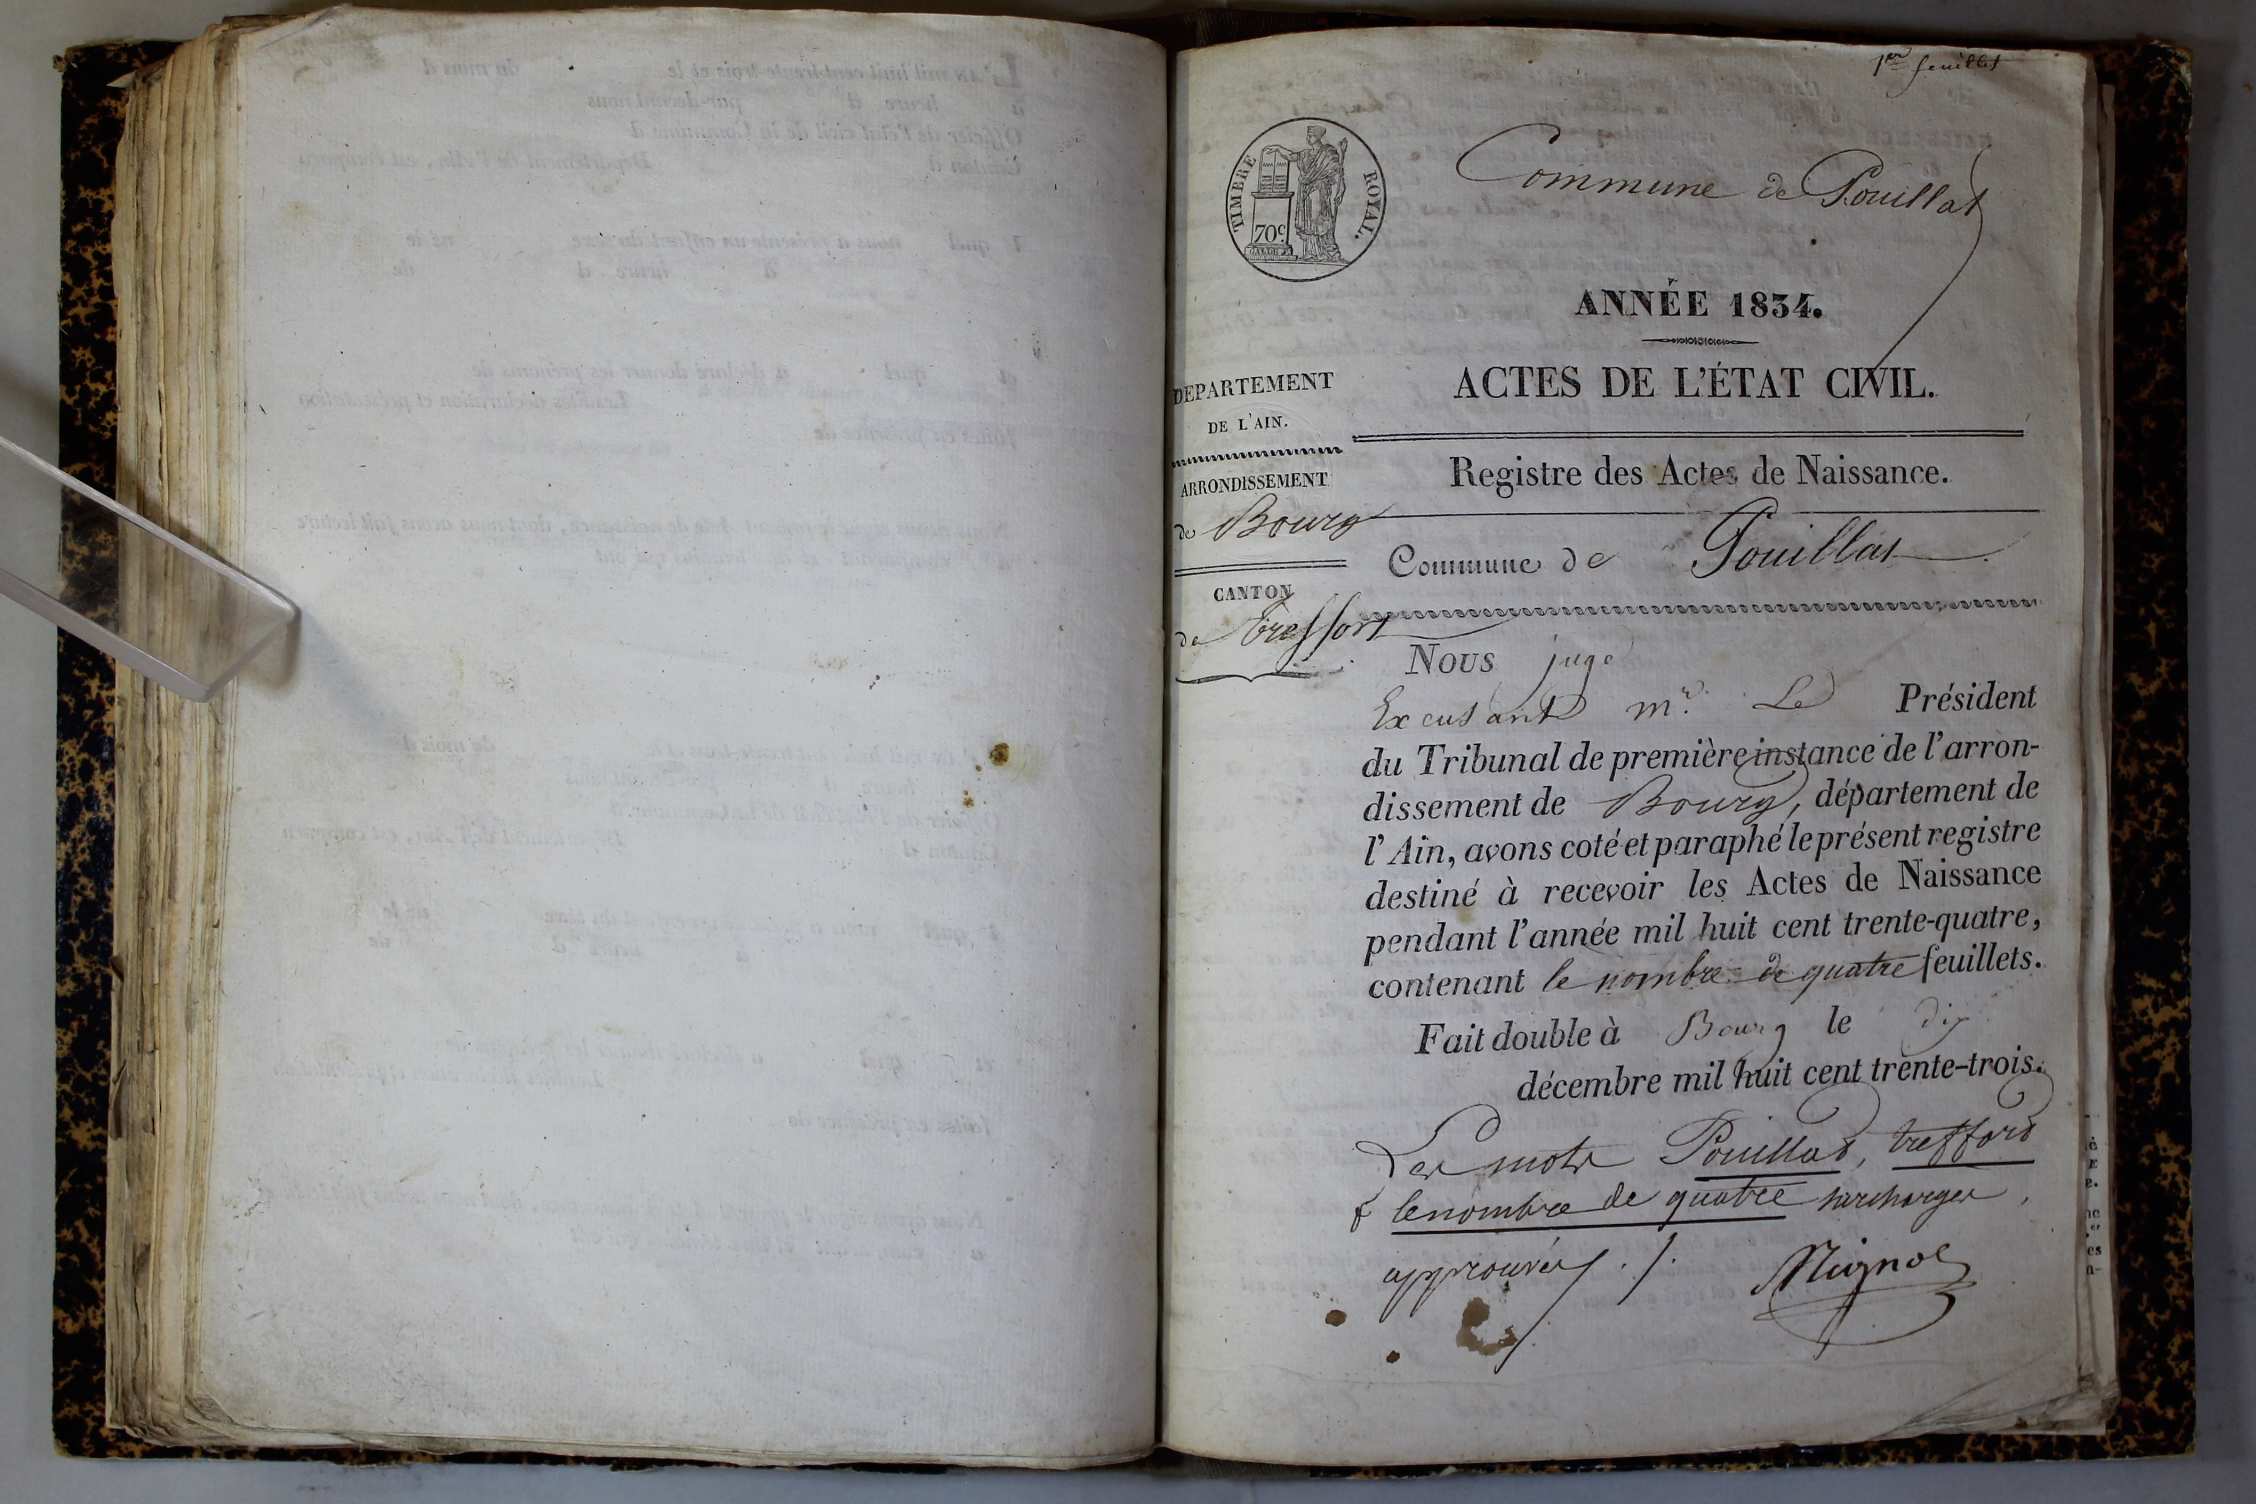 1er feuillet
TIMBRE ROYAL.
70c.
Commune de Pouillat
ANNÉE 1834.
ACTES DE L'ÉTAT CIVIL.
DÉPARTEMENT
DE L'AIN.
ARRONDISSEMENT
de Bourg
CANTON
de Treffort
Registre des Actes de Naissance.
Commune de Pouillat
Nous juge
Excusant Mr. Le Président
du Tribunal de première instance de l'arron-
dissement de Bourg, département de
l'Ain, avons coté et paraphé le présent registre
destiné à recevoir les Actes de Naissance
pendant l'année mil huit cent trente-quatre,
contenant le nombre de quatre feuillets.
Fait double à Bourg le dix
décembre mil huit cent trente-trois.
Les mots Pouillat, treffort
& le nombre de quatre surchargés,
approuvés ./.